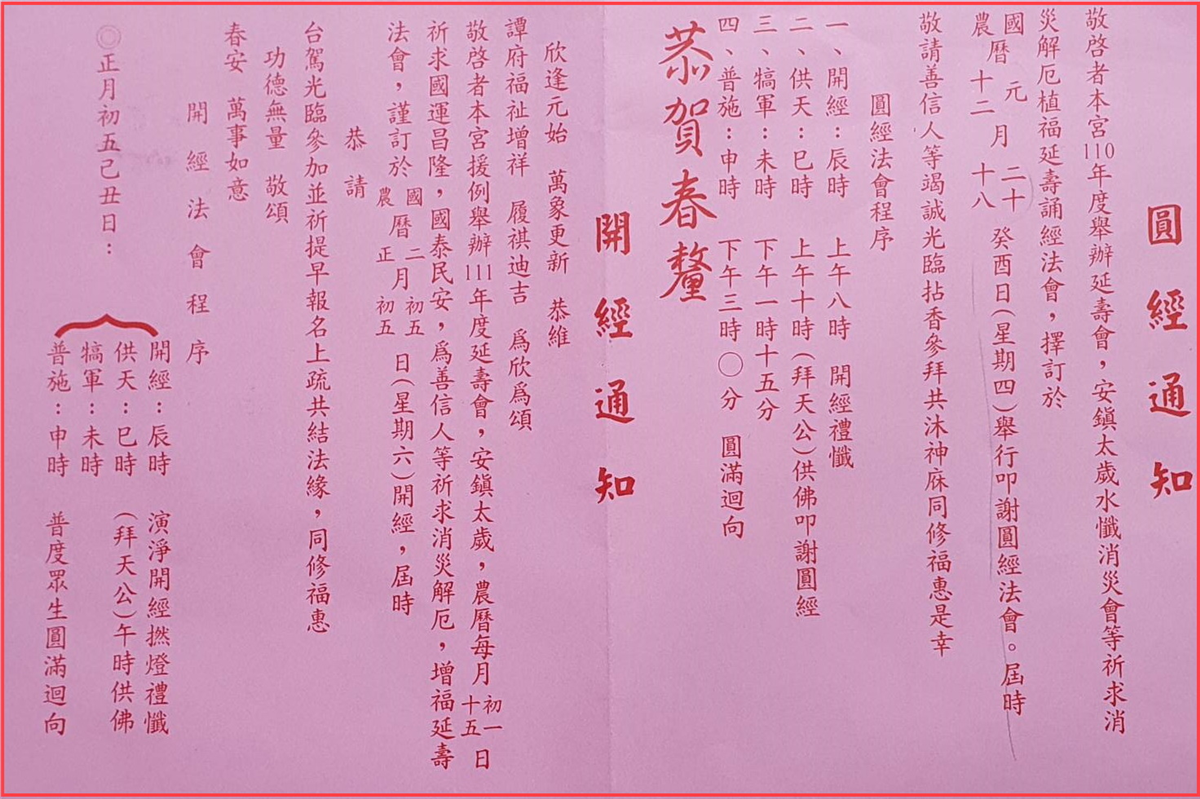 圓經通知
敬啓者本宮110年度舉辦延壽會，安鎮太歲水懺消災會等祈求消
災解厄植福延壽誦經法會，擇訂於
國曆元月二十
農曆十二月十八
癸酉日(星期四)舉行叩謝圓經法會。屆時
敬請善信人等竭誠光臨拈香參拜共沐神庥同修福惠是幸
圓經法會程序
一、開經：辰時　上午八時　開經禮懺
二、供天：巳時　上午十時(拜天公)供佛叩謝圓經
三、犒軍：未時　下午一時十五分
四、普施：申時　下午三時〇分　圓滿迴向
恭賀春釐
開經通知
欣逢元始　萬象更新　恭維
譚府福祉增祥　履祺迪吉　爲欣爲頌
敬啓者本宮援例舉辦111年度延壽會，安鎮太歲，農曆每月初一十五日
祈求國運昌隆，國泰民安，爲善信人等祈求消災解厄，增福延壽
法會，謹訂於國曆二月初五農曆正月初五日(星期六)開經，屆時
恭請
台駕光臨參加並祈提早報名上疏共結法緣，同修福惠
功德無量　敬頌
春安　萬事如意
開經法會程序
◎正月初五己丑日：
開經：辰時　演淨開經撚燈禮懺
供天：巳時　(拜天公)午時供佛
犒軍：未時
普施：申時　普度眾生圓滿迴向